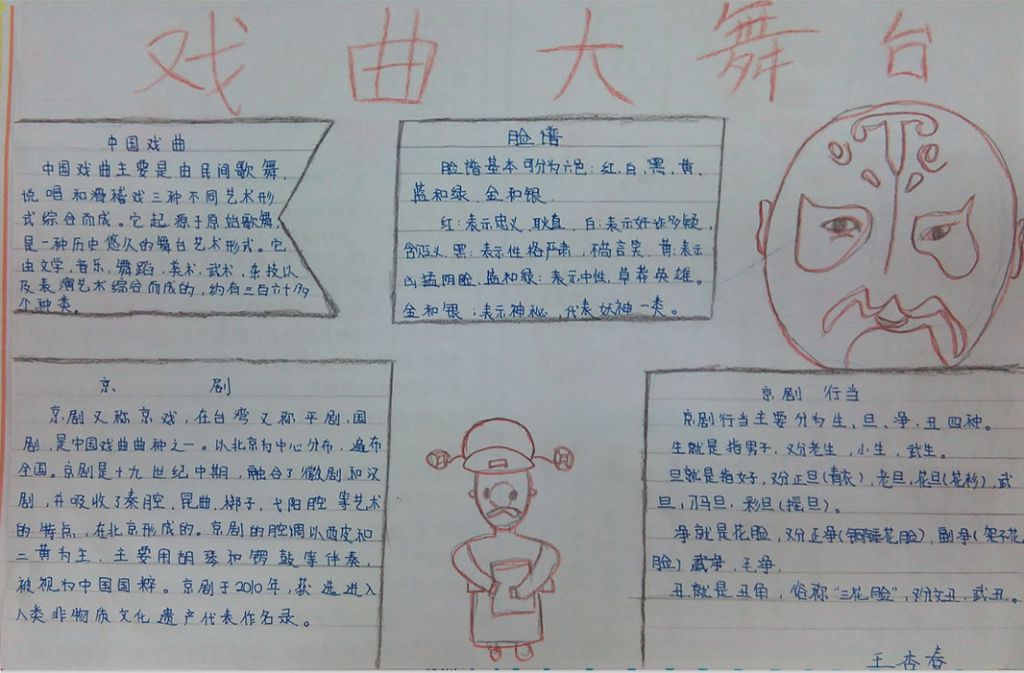 戏曲大舞台
中国戏曲
中国戏曲主要是由民间歌舞、
说唱和滑稽戏三种不同艺术形
式综合而成。它起源于原始歌舞,
是一种历史悠久的舞台艺术形式。它
由文学,音乐,舞蹈,美术,武术,杂技以
及表演艺术综合而成的,约有三百六十多
个种类。
脸谱
脸谱基本可分为六色:红、白、黑、黄、
蓝和绿、金和银
红:表示忠义、耿直、白:表示奸诈多疑,
含贬义、黑:表示性格严肃,不苟言笑、黄:表示
凶猛阴险、蓝和绿:表示中性,草莽英雄。
金和银:表示神秘,代表妖神一类。
京剧
京剧又称京戏,在台湾又称平剧、国
剧,是中国戏曲曲种之一。以北京为中心分布,遍布
全国。京剧是十九世纪中期,融合了徽剧和汉
剧,并吸收了秦腔、昆曲、梆子、弋阳腔等艺术
的特点,在北京形成的。京剧的腔调以西皮和
二黄为主,主要用胡琴和锣鼓等伴奏,
被视为中国国粹。京剧于2010年,获选进入
人类非物质文化遗产代表作名录。
京剧 行当
京剧行当主要分为生、旦、净、丑四种。
生就是指男子,又分老生,小生,武生。
旦就是指女子,又分正旦(青衣),老旦,花旦(花衫),武
旦,刀马旦,彩旦(摇旦)。
净就是花脸,又分正净(铜锤花脸),副净(架子花
脸)武净,毛净.
丑就是丑角,俗称"三花脸",又分文丑,武丑。
王杏春